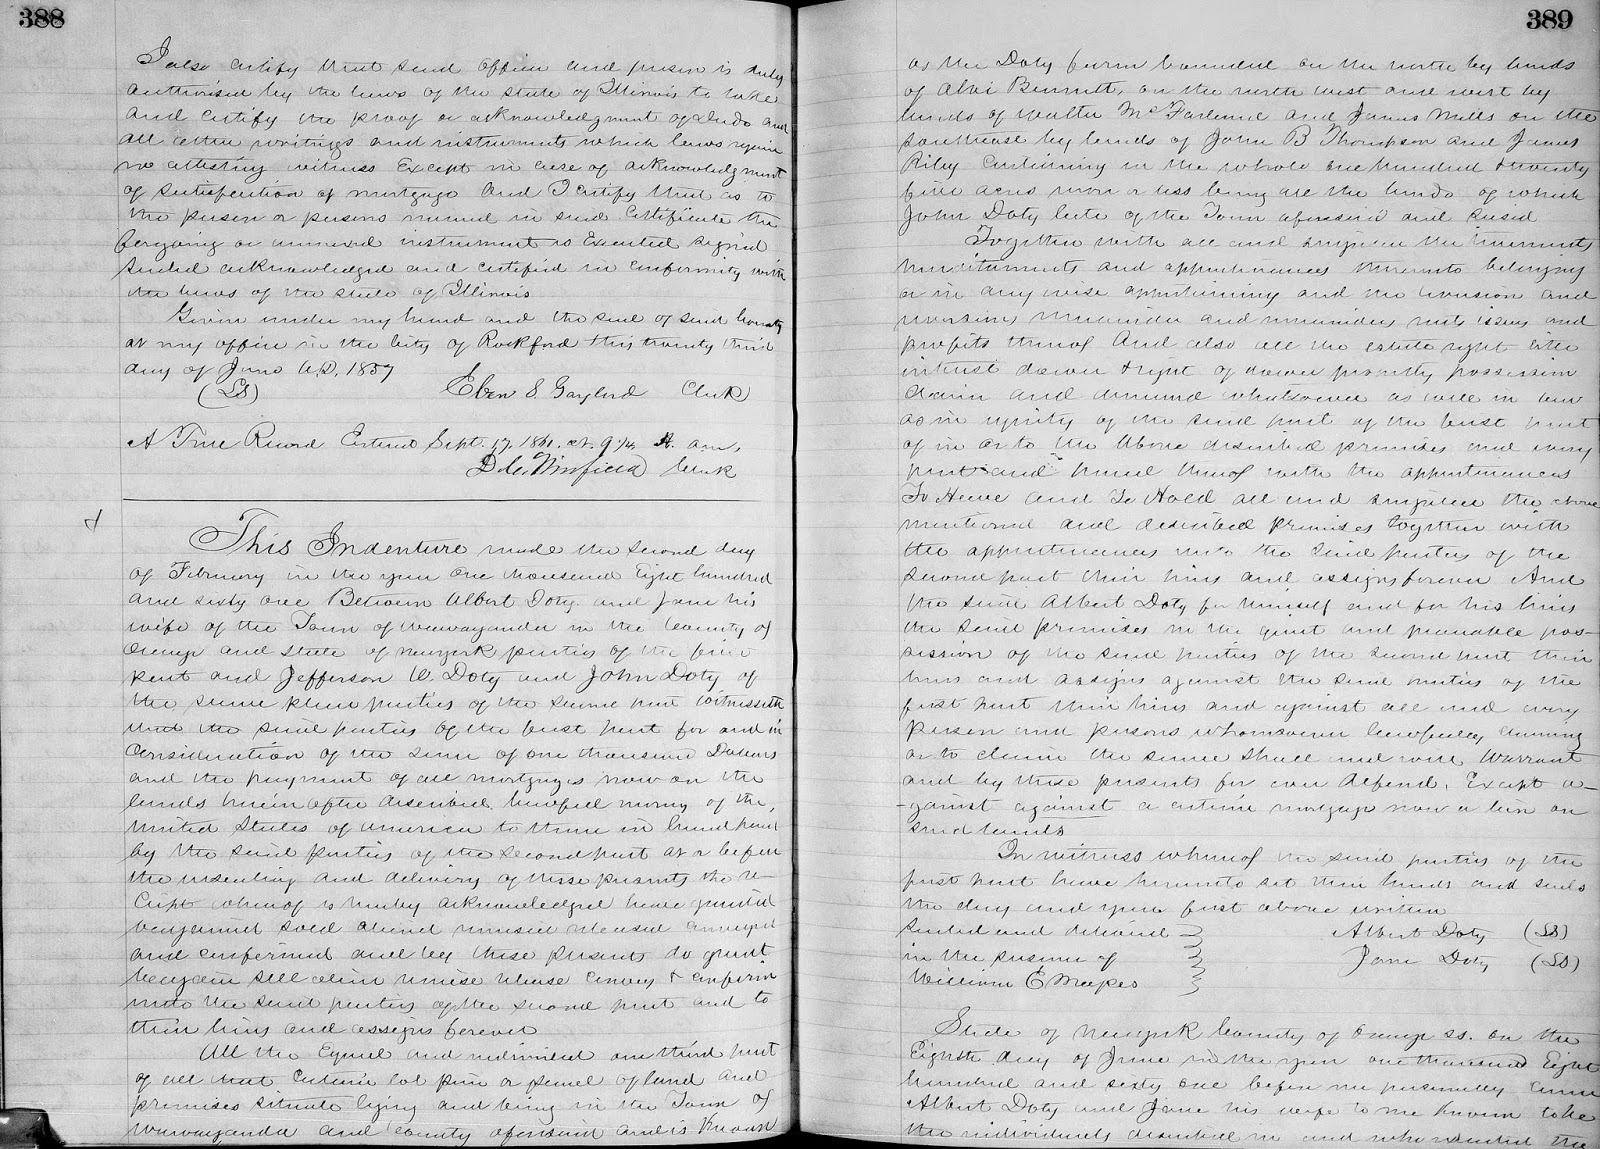 388
I also certify that said officer and person is duly
authorised by the laws of the state of Illinois to take
and certify the proof or acknowledgment of Deeds and
all other writings and instruments which laws require
no attesting witness Except in case of acknowledgment
of satisfaction of mortgage And I certify that as to
the person or persons named in said certificate the
forgoing or annexed instrument is Executed signed
sealed acknowledged and certified in conformity with
the laws of the state of Illinois
Given under my hand and the seal of said County
at my office in the City of Rockford this twenty third
day of June A.D. 1857
(LS) Eben S Gaylord Clerk
A True Record Entered Sept. 17. 1861. at 9 1/4 H. am,
Winfield Clerk
This Indenture made the second day
of February in the year one thousand Eight hundred
and sixty one Between Albert Doty and Jane his
wife of the Town of Wawayanda in the County of
Orange and State of Newyork parties of the first
part and Jefferson W. Doty and John Doty of
the same place parties of the second part Witnesseth
that the said parties of the first part for and in
Consideration of the sum of one thousand Dollars
and the payment of all mortgages now on the
lands herein after described lawful money of the
United States of America to them in hand paid
by the said parties of the second part at or before
the ensealing and delivery of these presents the re-
ceipt whereof is hereby acknowledged have granted
bargained sold aliened remised released conveyed
and confirmed and by these presents do grant
bargain sell alien remise release convey & confirm
unto the said parties of the second part and to
their heirs and assigns forever
All the Equal and undivided one third part
of all that certain lot piece or parcel of land and
premises situate lying and being in the Town of
Wawayanda and County aforesaid and is known
389
as the Doty farm bounded on the north by lands
of Alvi Bennett, on the north west and west by
lands of Walter McFarland and James Mills on the
southeast by lands of John B Thompson and James
Riley Containing in the whole one hundred & twenty
five acres more or less being all the lands of which
John Doty late of the Town aforesaid
Together with all and singular the tenements
hereditaments and appurtenances thereunto belonging
or in any wise appertaining and the reversion and
reversions remainder and remainders rents issues and
profits thereof And also all the estate right title
interest dower & right of dower property possession
claim and demand whatsoever as well in law
as in equity of the said part of the first part
of in or to the above described premises and every
part and parcel thereof with the appurtenances
To Have and To Hold all and singular the above
mentioned and described premises together with
the appurtenances unto the said parties of the
second part their heirs and assigns forever And
the said Albert Doty for himself and for his heirs
the said premises in the quiet and peaceable pos-
session of the said parties of the second part their
heirs and assigns against the said parties of the
first part their heirs and against all and every
person and persons whomsoever lawfully claiming
or to claim the same shall and will Warrant
and by these presents for ever defend, Except a-
-gainst against a certain mortgage now a lien on
said lands
In witness whereof the said parties of the
first part have hereunto set their hands and seals
the day and year first above written
Sealed and delivered Albert Doty (LS)
in the presence of Jane Doty (LS)
William E Mapes
State of Newyork County of Orange ss. On the
Eighth day of June in the year one thousand Eight
hundred and sixty one before me personally came
Albert Doty and Jane his wife to me known to be
the individuals described in and who executed the